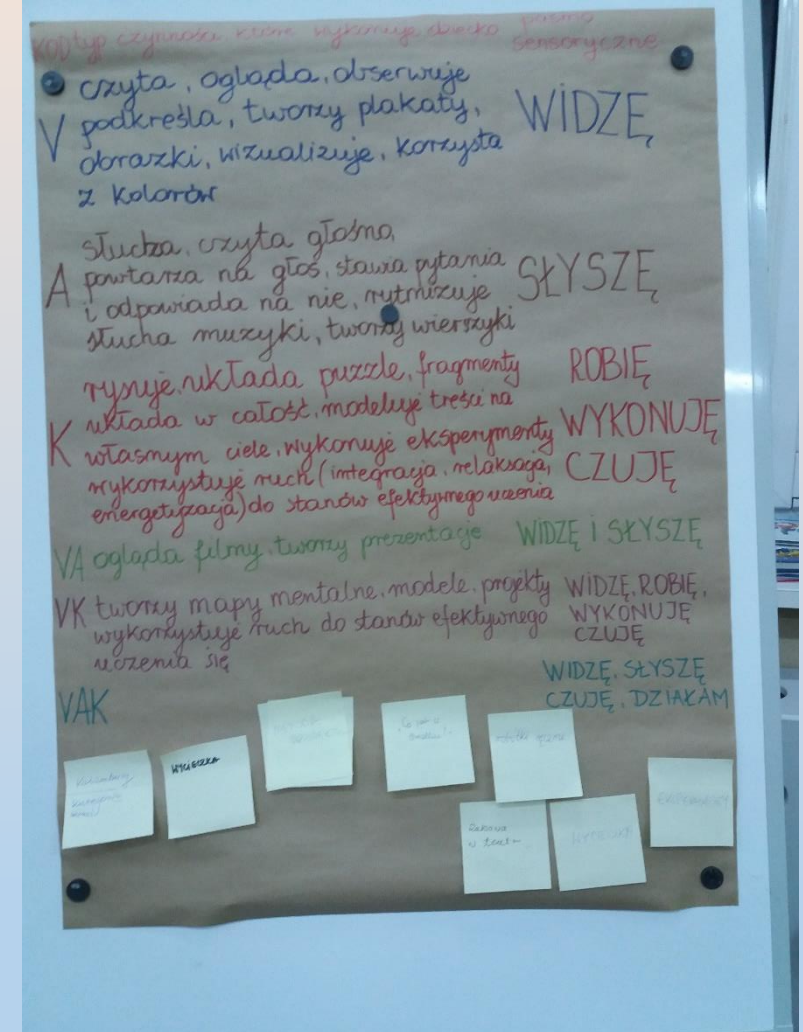 KOD typ czynności które wykonuje dziecko pasmo sensoryczne
V czyta, ogląda, obserwuje
podkreśla, tworzy plakaty,
obrazki, wizualizuje, korzysta
z kolorów
WIDZĘ
A słucha, czyta głośno,
powtarza na głos, stawia pytania
i odpowiada na nie, rytmizuje
słucha muzyki, tworzy wierszyki
SŁYSZĘ
K rysuje, układa puzzle, fragmenty
układa w całość, modeluje treści na
własnym ciele, wykonuje eksperymenty
wykorzystuje ruch (integracja, relaksacja,
energetyzacja) do stanów efektywnego uczenia
ROBIĘ
WYKONUJĘ
CZUJĘ
VA ogląda filmy, tworzy prezentacje WIDZĘ I SŁYSZĘ
VK tworzy mapy mentalne, modele, projekty
wykorzystuje ruch do stanów efektywnego
uczenia się
WIDZĘ, ROBIĘ,
WYKONUJĘ
CZUJĘ
VAK
WIDZĘ, SŁYSZĘ
CZUJĘ, DZIAŁAM
WYCIECZKA
Zabawa
w teatr
WYCIECZKA
EKSPERYMENTY